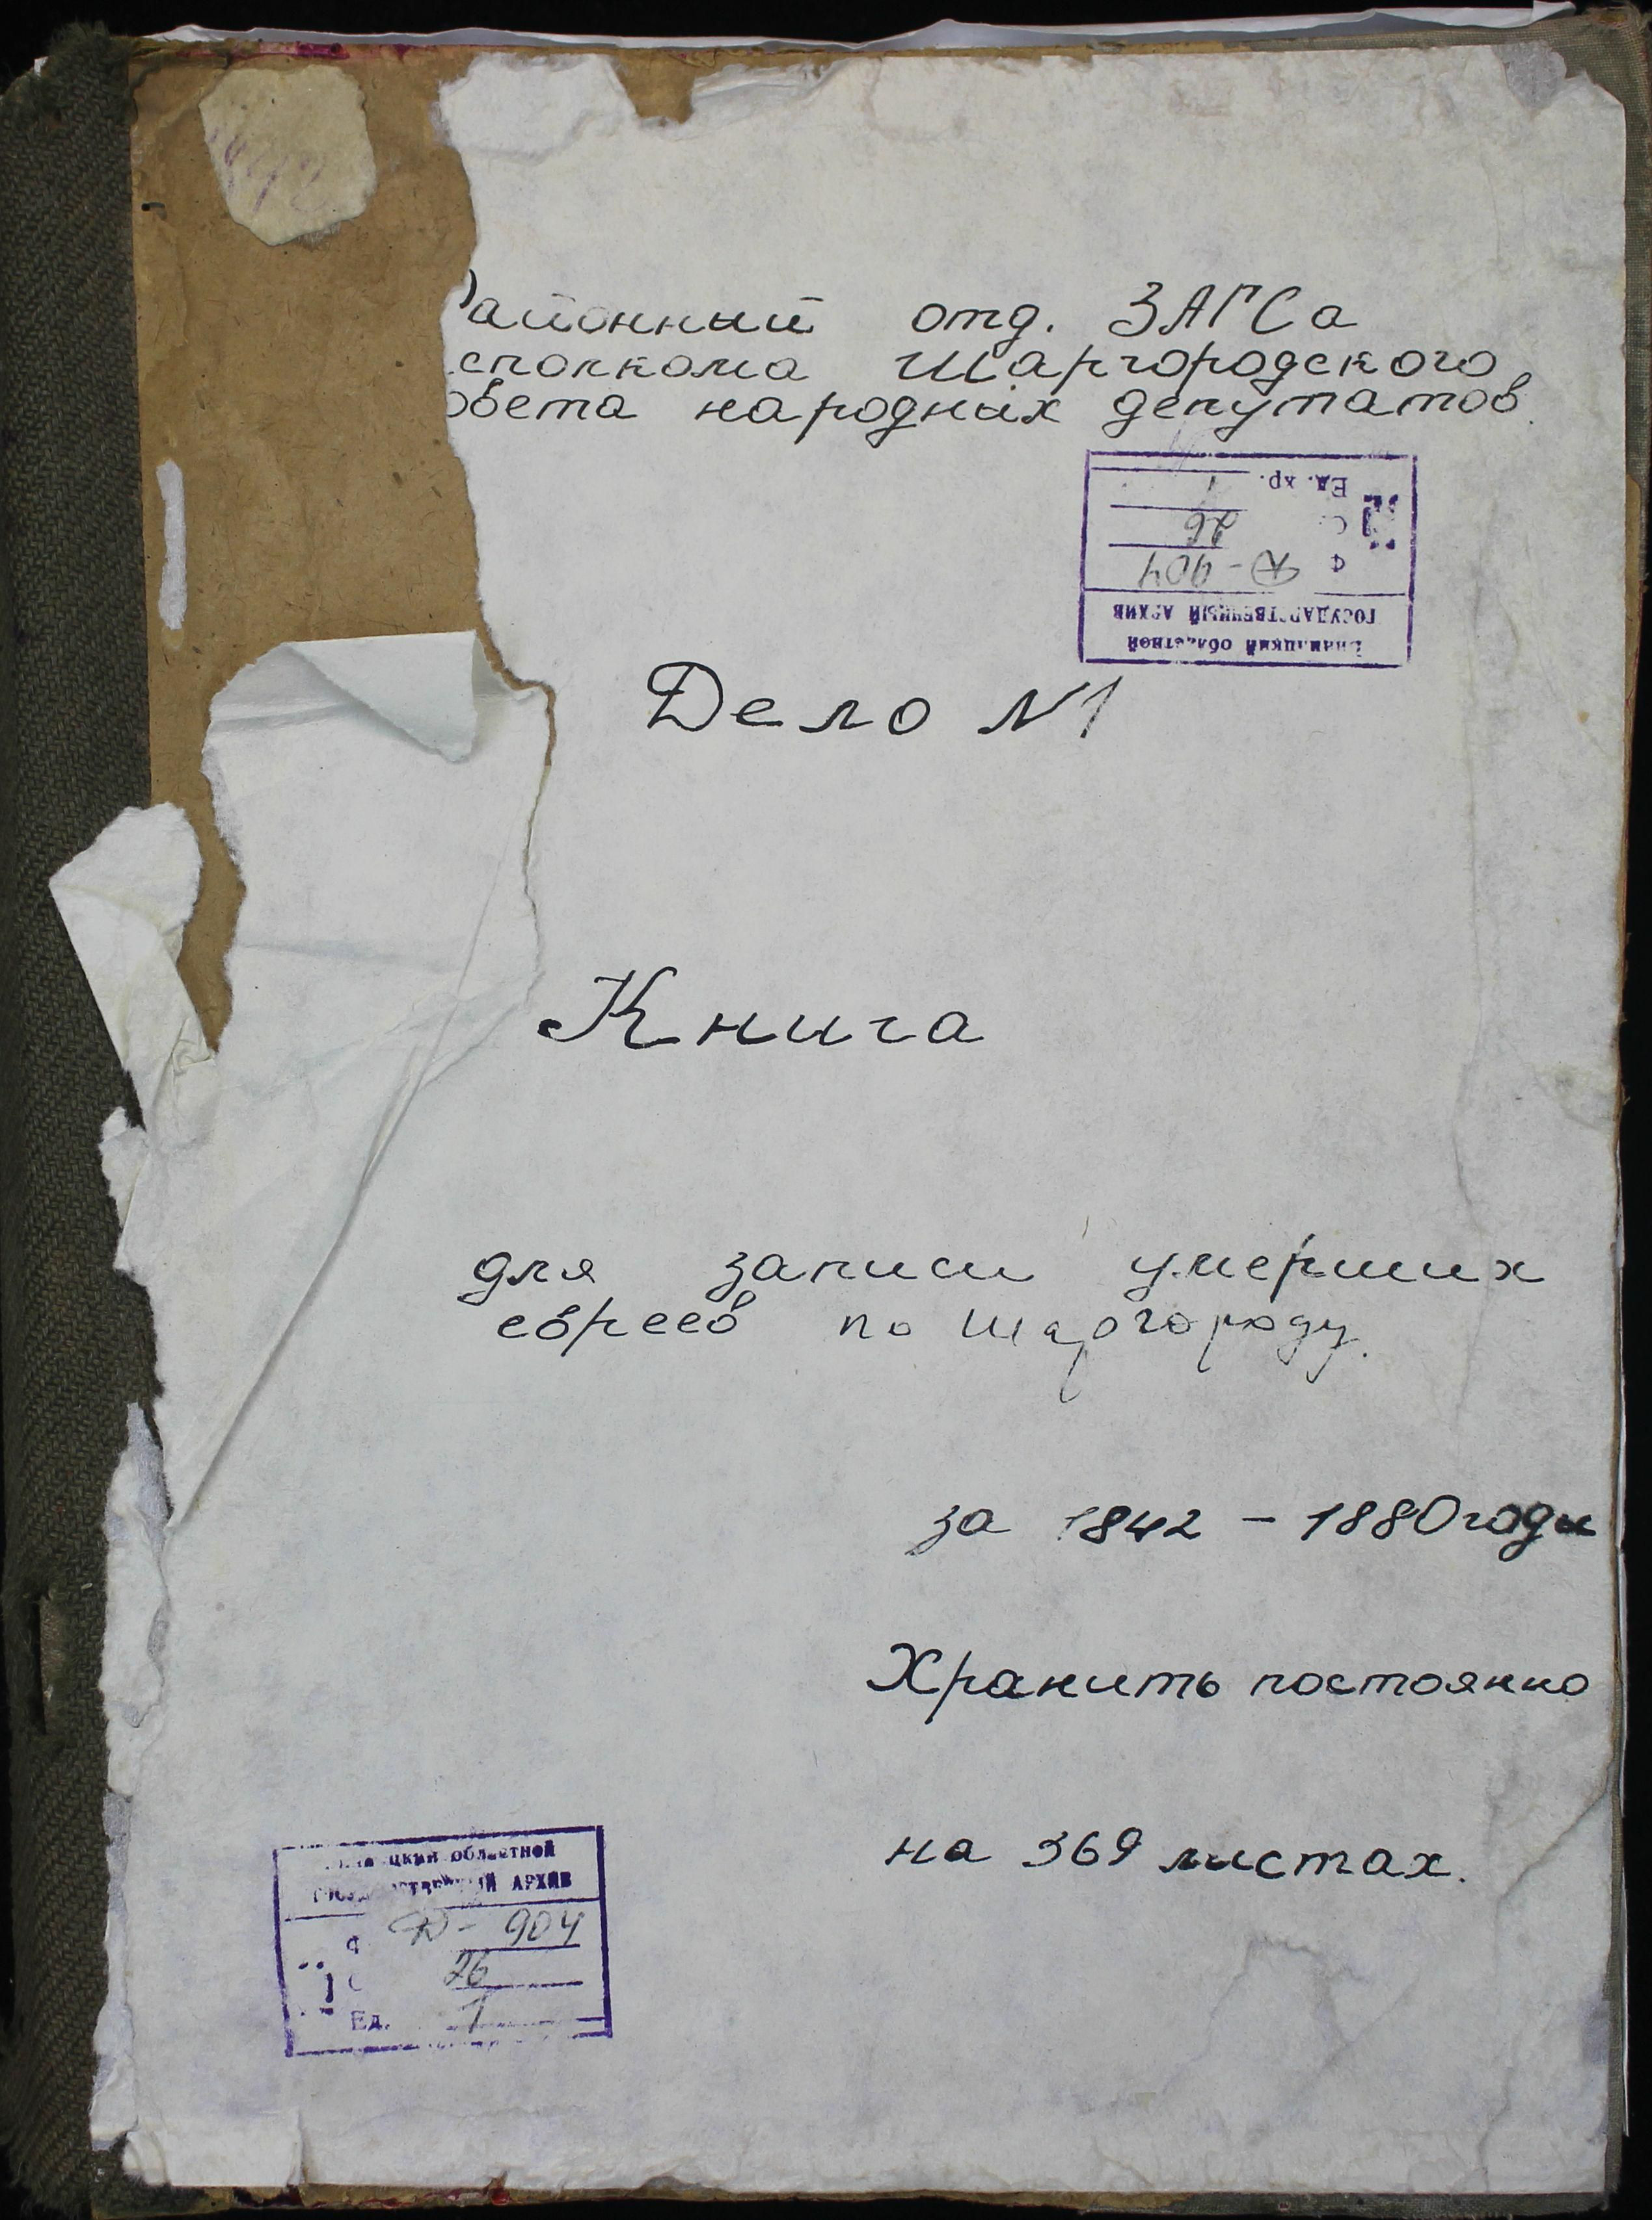 Районный отд. ЗАГСа
сполкома Шаргородского
овета народных депутатов.
Ед. хр. 1
26
Ф Д-904
ГОСУДАРСТВЕННЫЙ АРХИВ
Винницкий областной
Дело №1
Книга
для записи умерших
евреев по Шаргороду.
за 1842 - 1880 годы
Хранить постоянно
на 369 листах.
Винницкий областной
ГОСУДАРСТВЕННЫЙ АРХИВ
Ф Д-904
26
Ед. 1